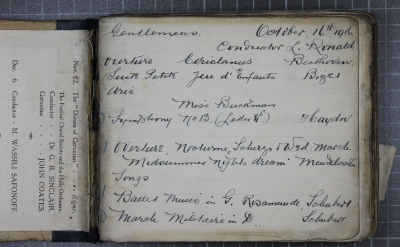 Nov. 22. The "Dream of Gerontius." Elgar.
The Festival Choral Society and the Halle Orchestra.
Conductor - Dr. G. R. SINCLAIR.
Gerontius - JOHN COATES.
Dec. 6. Conductor - M. WASSILI SAFONOFF.
Gentlemens. October 16th 1912
Conductor L. Ronald
Overture Coriolanus Beethoven.
Suite Petite Jeu d'Enfants Bizet
Aria
Miss Buckman
Symphony No 13. (Letter V.) Haydn
1 Overture, Nocturne, Scherzo & Wed March
Midsummer nights dream Mendelssohn
Songs
1 Ballet Music in G. Rosamunde. Schubert
March Militaire in D. Schubert